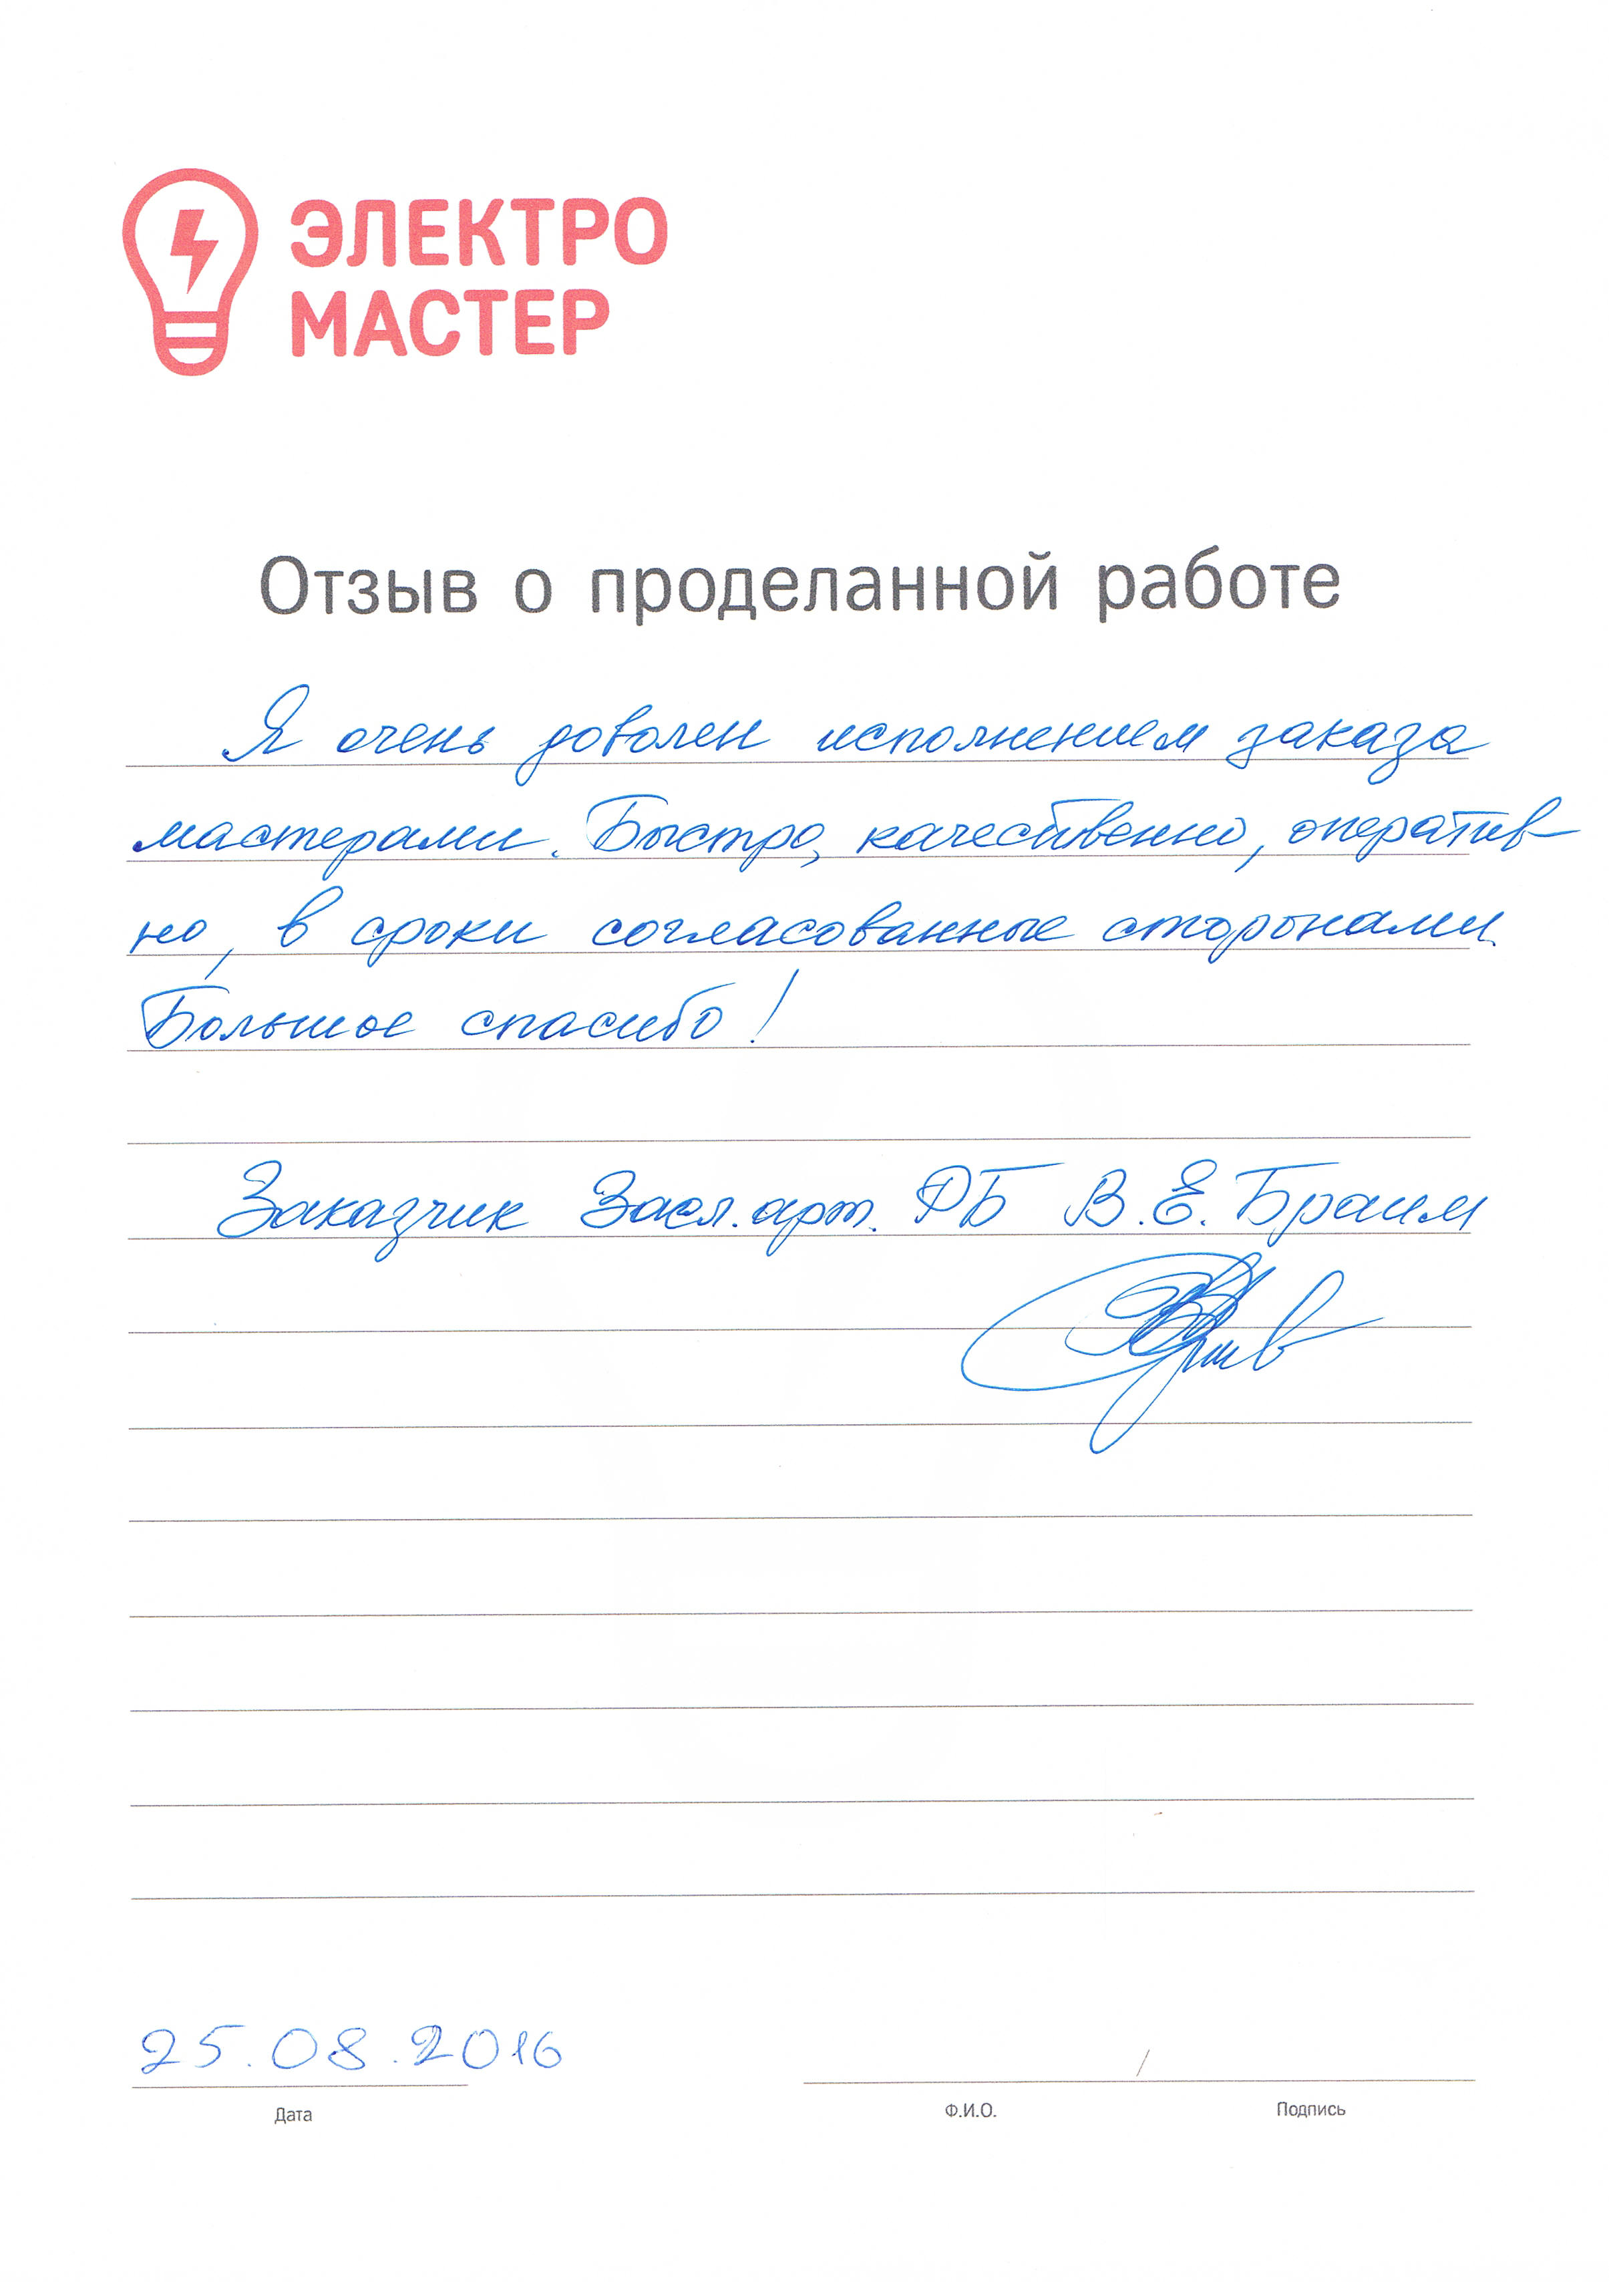 ЭЛЕКТРО
МАСТЕР
Отзыв о проделанной работе
Я очень доволен исполнением заказа
мастерами. Быстро, качественно, оператив-
но, в сроки согласованные сторонами.
Большое спасибо!
Заказчик Засл. арт. РБ В.Е. Браим
25.08.2016
/
Дата Ф.И.О. Подпись